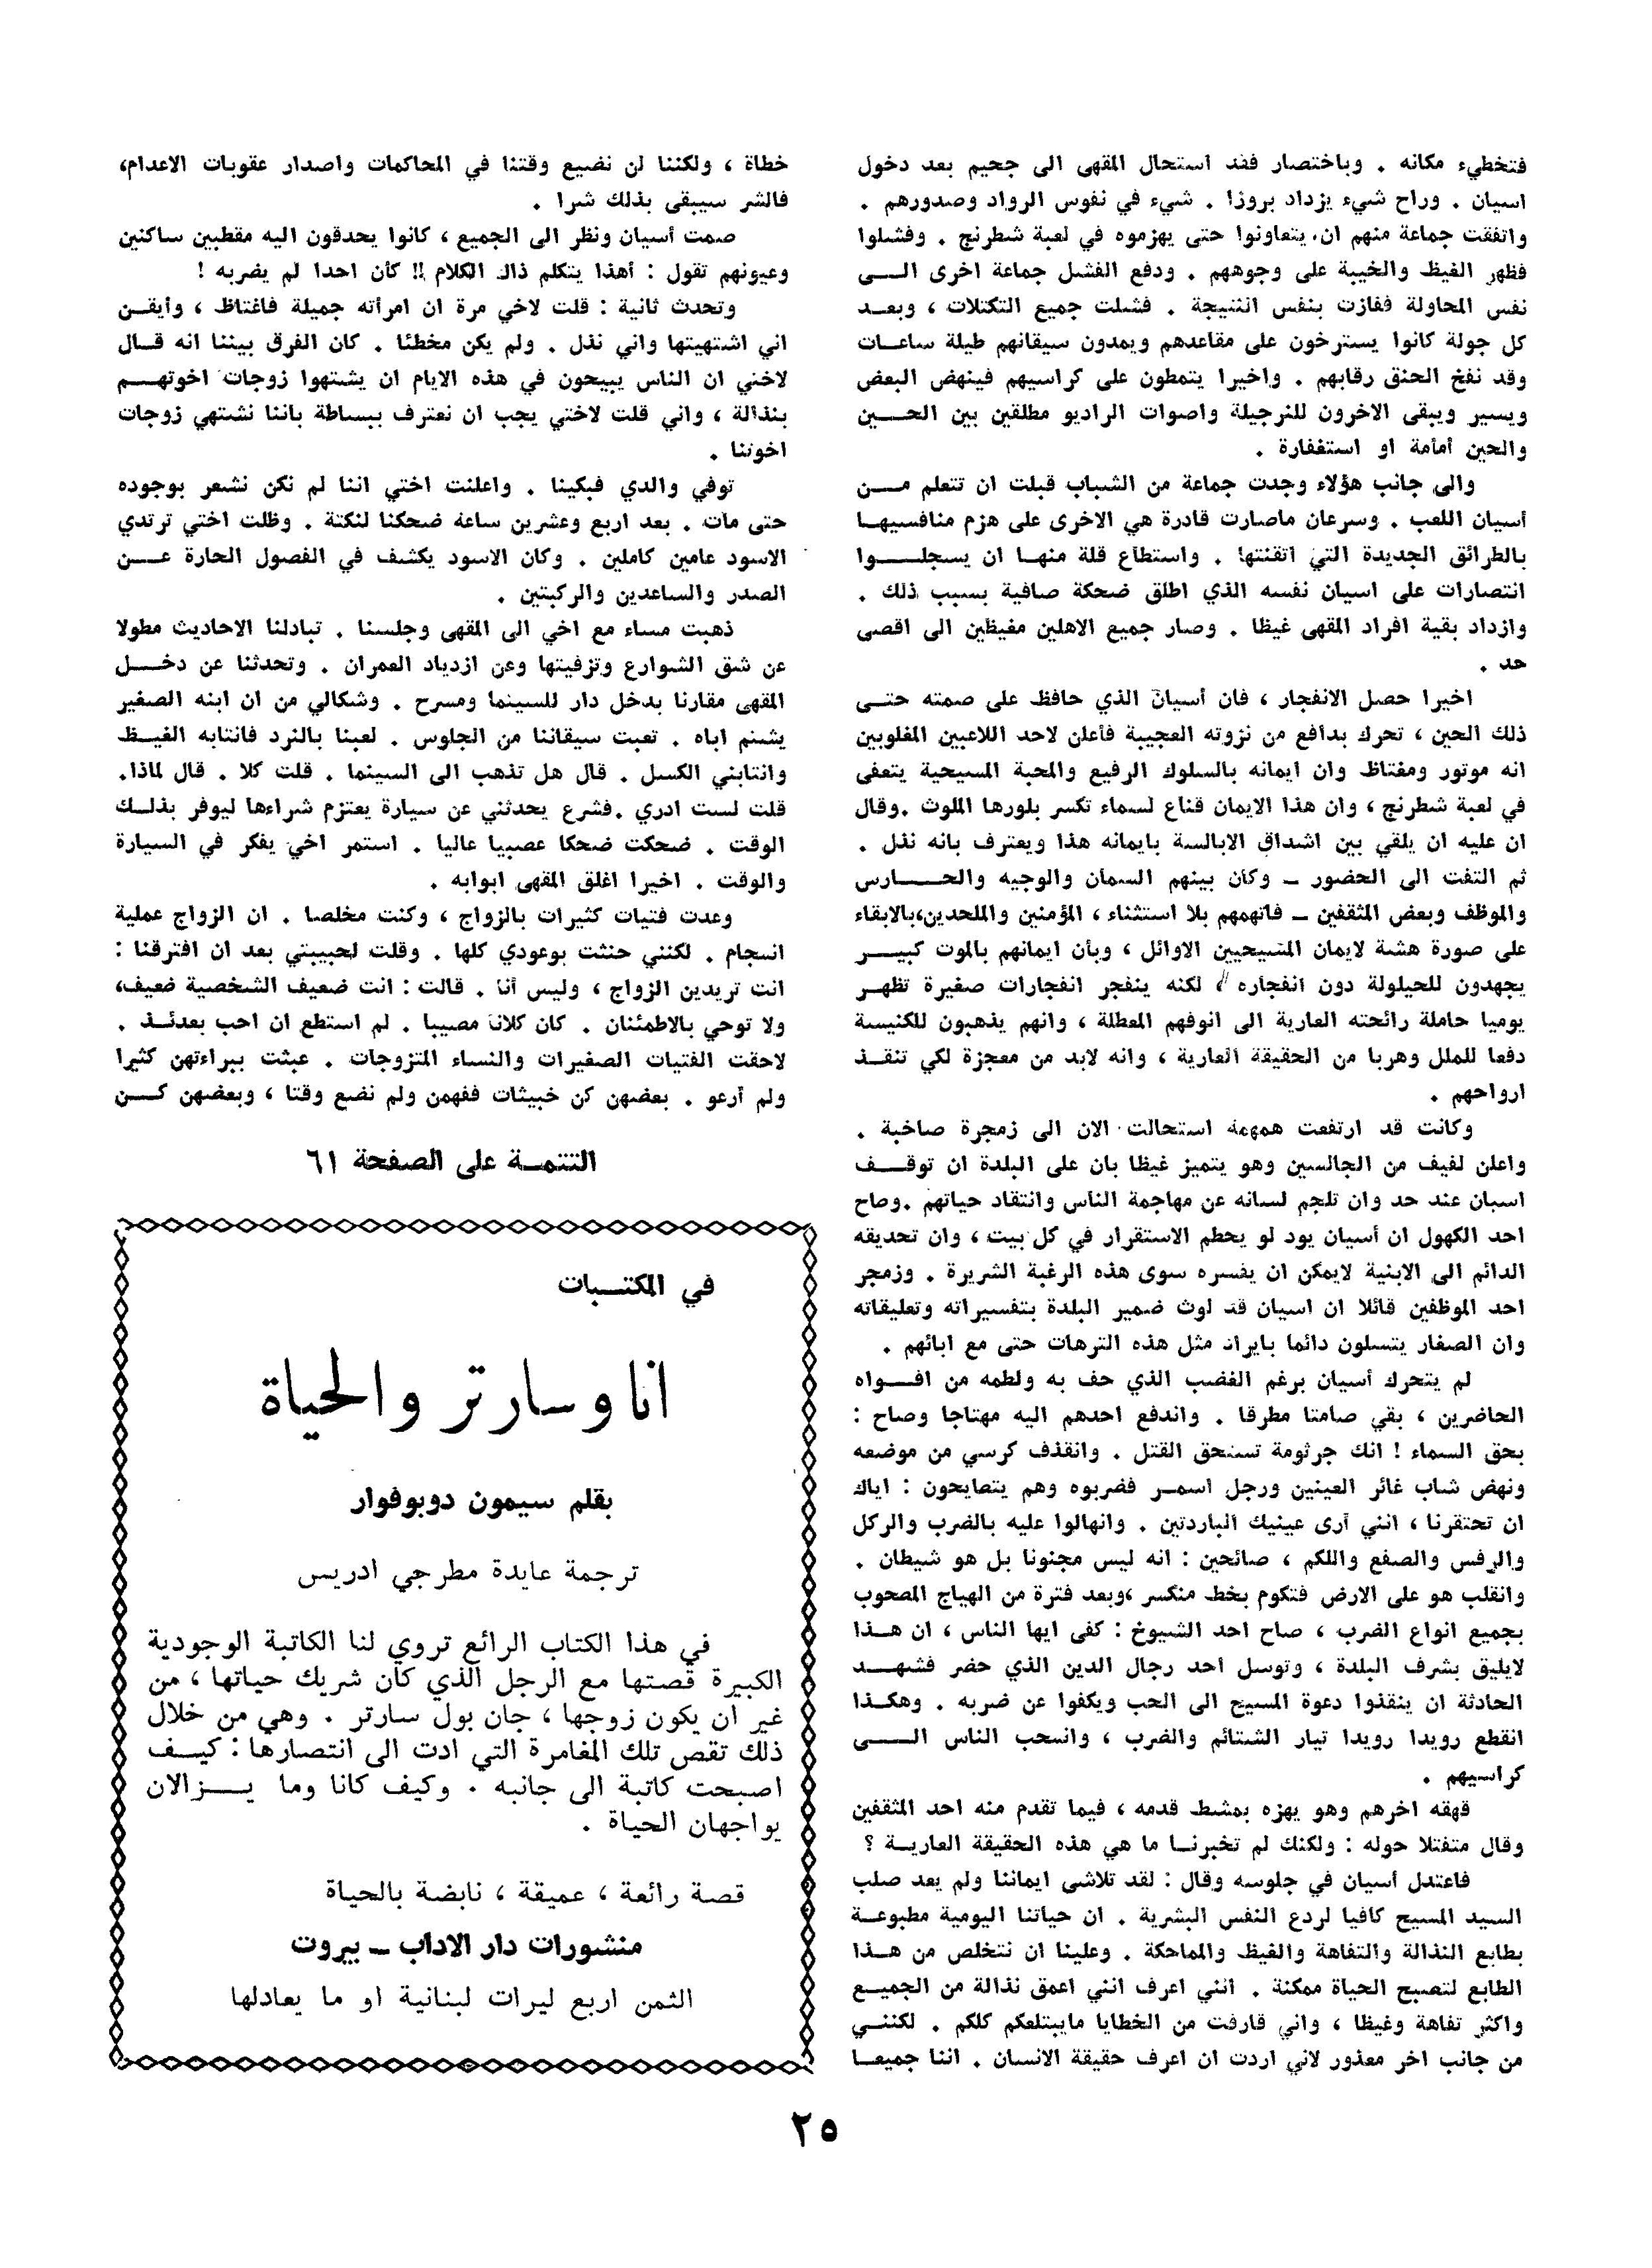 فتخطيء مكانه . وباختصار فقد استحال المقهى الى جحيم بعد دخول
اسيان . وراح شيء يزداد بروزا . شيء في نفوس الرواد وصدورهم .
واتفقت جماعة منهم ان يتعاونوا حتى يهزموه في لعبة شطرنج . وفشلوا
فظهر الغيظ والخيبة على وجوههم . ودفع الفشل جماعة اخرى الى
نفس المحاولة ففازت بنفس النتيجة . فشلت جميع التكتلات ، وبعد
كل جولة كانوا يسترخون على مقاعدهم ويمدون سيقانهم طيلة ساعات
وقد نفخ الحنق رقابهم . واخيرا يتمطون على كراسيهم فينهض البعض
ويسير ويبقى الاخرون للنرجيلة واصوات الراديو مطلقين بين الحين
والحين أمأمة او استغفارة .
والى جانب هؤلاء وجدت جماعة من الشباب قبلت ان تتعلم من
أسيان اللعب . وسرعان ماصارت قادرة هي الاخرى على هزم منافسيها
بالطرائق الجديدة التي اتقنتها . واستطاع قلة منها ان يسجلوا
انتصارات على اسيان نفسه الذي اطلق ضحكة صافية بسبب ذلك .
وازداد بقية افراد المقهى غيظا . وصار جميع الاهلين مغيظين الى اقصى
حد .
اخيرا حصل الانفجار ، فان أسيان الذي حافظ على صمته حتى
ذلك الحين ، تحرك بدافع من نزوته العجيبة فأعلن لاحد اللاعبين المغلوبين
انه موتور ومغتاظ وان ايمانه بالسلوك الرفيع والمحبة المسيحية يتعفى
في لعبة شطرنج ، وان هذا الايمان قناع لسماء تكسر بلورها الملوث .وقال
ان عليه ان يلقي بين اشداق الابالسة بايمانه هذا ويعترف بانه نذل .
ثم التفت الى الحضور – وكان بينهم السمان والوجيه والحارس
والموظف وبعض المثقفين – فاتهمهم بلا استثناء ، المؤمنين والملحدين،بالابقاء
على صورة هشة لايمان المسيحيين الاوائل ، وبأن ايمانهم بالموت كبير
يجهدون للحيلولة دون انفجاره ، لكنه ينفجر انفجارات صغيرة تظهر
يوميا حاملة رائحته العارية الى انوفهم المعطلة ، وانهم يذهبون للكنيسة
دفعا للملل وهربا من الحقيقة العارية ، وانه لابد من معجزة لكي تنقذ
ارواحهم .
وكانت قد ارتفعت همهمة استحالت الان الى زمجرة صاخبة .
واعلن لفيف من الجالسين وهو يتميز غيظا بان على البلدة ان توقف
اسيان عند حد وان تلجم لسانه عن مهاجمة الناس وانتقاد حياتهم .وصاح
احد الكهول ان أسيان يود لو يحطم الاستقرار في كل بيت ، وان تحديقه
الدائم الى الابنية لايمكن ان يفسره سوى هذه الرغبة الشريرة . وزمجر
احد الموظفين قائلا ان اسيان قد لوث ضمير البلدة بتفسيراته وتعليقاته
وان الصغار يتسلون دائما بايراد مثل هذه الترهات حتى مع ابائهم .
لم يتحرك أسيان برغم الغضب الذي حف به ولطمه من افواه
الحاضرين ، بقي صامتا مطرقا . واندفع احدهم اليه مهتاجا وصاح :
بحق السماء ! انك جرثومة تستحق القتل . وانقذف كرسي من موضعه
ونهض شاب غائر العينين ورجل اسمر فضربوه وهم يتصايحون : اياك
ان تحتقرنا ، انني أرى عينيك الباردتين . وانهالوا عليه بالضرب والركل
والرفس والصفع واللكم ، صائحين : انه ليس مجنونا بل هو شيطان .
وانقلب هو على الارض فتكوم بخط منكسر ،وبعد فترة من الهياج المصحوب
بجميع انواع الضرب ، صاح احد الشيوخ : كفى ايها الناس ، ان هذا
لايليق بشرف البلدة ، وتوسل احد رجال الدين الذي حضر فشهد
الحادثة ان ينقذوا دعوة المسيح الى الحب ويكفوا عن ضربه . وهكذا
انقطع رويدا رويدا تيار الشتائم والضرب ، وانسحب الناس الى
كراسيهم .
قهقه اخرهم وهو يهزه بمشط قدمه ، فيما تقدم منه احد المثقفين
وقال متفتلا حوله : ولكنك لم تخبرنا ما هي هذه الحقيقة العارية ؟
فاعتدل أسيان في جلوسه وقال : لقد تلاشى ايماننا ولم يعد صلب
السيد المسيح كافيا لردع النفس البشرية . ان حياتنا اليومية مطبوعة
بطابع النذالة والتفاهة والغيظ والماحكة . وعلينا ان نتخلص من هذا
الطابع لتصبح الحياة ممكنة . انني اعرف انني اعمق نذالة من الجميع
واكثر تفاهة وغيظا ، واني قارفت من الخطايا مايبتلعكم كلكم . لكنني
من جانب اخر معذور لاني اردت ان اعرف حقيقة الانسان . اننا جميعا
خطاة ، ولكننا لن نضيع وقتنا في المحاكمات واصدار عقوبات الاعدام،
فالشر سيبقى بذلك شرا .
صمت أسيان ونظر الى الجميع ، كانوا يحدقون اليه مقطبين ساكنين
وعيونهم تقول : أهذا يتكلم ذاك الكلام !! كأن احدا لم يضربه !
وتحدث ثانية : قلت لاخي مرة ان امرأته جميلة فاغتاظ ، وأيقن
اني اشتهيتها واني نذل . ولم يكن مخطئا . كان الفرق بيننا انه قال
لاختي ان الناس يبيحون في هذه الايام ان يشتهوا زوجات اخوتهم
بنذالة ، واني قلت لاختي يجب ان نعترف ببساطة باننا نشتهي زوجات
اخوتنا .
توفي والدي فبكينا . واعلنت اختي اننا لم نكن نشعر بوجوده
حتى مات . بعد اربع وعشرين ساعة ضحكنا لنكتة . وظلت اختي ترتدي
الاسود عامين كاملين . وكان الاسود يكشف في الفصول الحارة عن
الصدر والساعدين والركبتين .
ذهبت مساء مع اخي الى المقهى وجلسنا . تبادلنا الاحاديث مطولا
عن شق الشوارع وتزفيتها وعن ازدياد العمران . وتحدثنا عن دخل
المقهى مقارنا بدخل دار للسينما ومسرح . وشكالي من ان ابنه الصغير
يشتم اباه . تعبت سيقاننا من الجلوس . لعبنا بالنرد فانتابه الغيظ
وانتابني الكسل . قال هل تذهب الى السينما . قلت كلا . قال لماذا.
قلت لست ادري .فشرع يحدثني عن سيارة يعتزم شراءها ليوفر بذلك
الوقت . ضحكت ضحكا عصبيا عاليا . استمر اخي يفكر في السيارة
والوقت . اخيرا اغلق المقهى ابوابه .
وعدت فتيات كثيرات بالزواج ، وكنت مخلصا . ان الزواج عملية
انسجام . لكنني حنثت بوعودي كلها . وقلت لحبيبتي بعد ان افترقنا :
انت تريدين الزواج ، وليس أنا . قالت : انت ضعيف الشخصية ضعيف،
ولا توحي بالاطمئنان . كان كلانا مصيبا . لم استطع ان احب بعدئذ .
لاحقت الفتيات الصغيرات والنساء المتزوجات . عبثت ببراءتهن كثيرا
ولم أرعو . بعضهن كن خبيثات ففهمن ولم نضع وقتا ، وبعضهن كن
التتمة على الصفحة ٦١
في المكتبات
انا وسارتر والحياة
بقلم سيمون دوبوفوار
ترجمة عايدة مطرجي ادريس
في هذا الكتاب الرائع تروي لنا الكاتبة الوجودية
الكبيرة قصتها مع الرجل الذي كان شريك حياتها ، من
غير ان يكون زوجها ، جان بول سارتر . وهي من خلال
ذلك تقص تلك المغامرة التي ادت الى انتصارها : كيف
اصبحت كاتبة الى جانبه . وكيف كانا وما يزالان
يواجهان الحياة .
قصة رائعة ، عميقة ، نابضة بالحياة
منشورات دار الاداب – بيروت
الثمن اربع ليرات لبنانية او ما يعادلها
٢٥